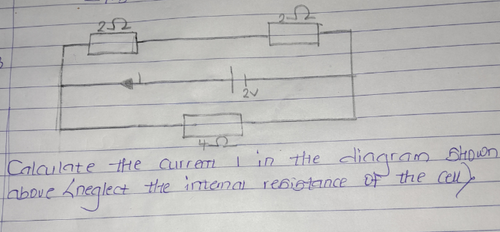 2Ω 2Ω
I
2v
4Ω
Calculate the current I in the diagram shown
above (neglect the internal resistance of the cell).